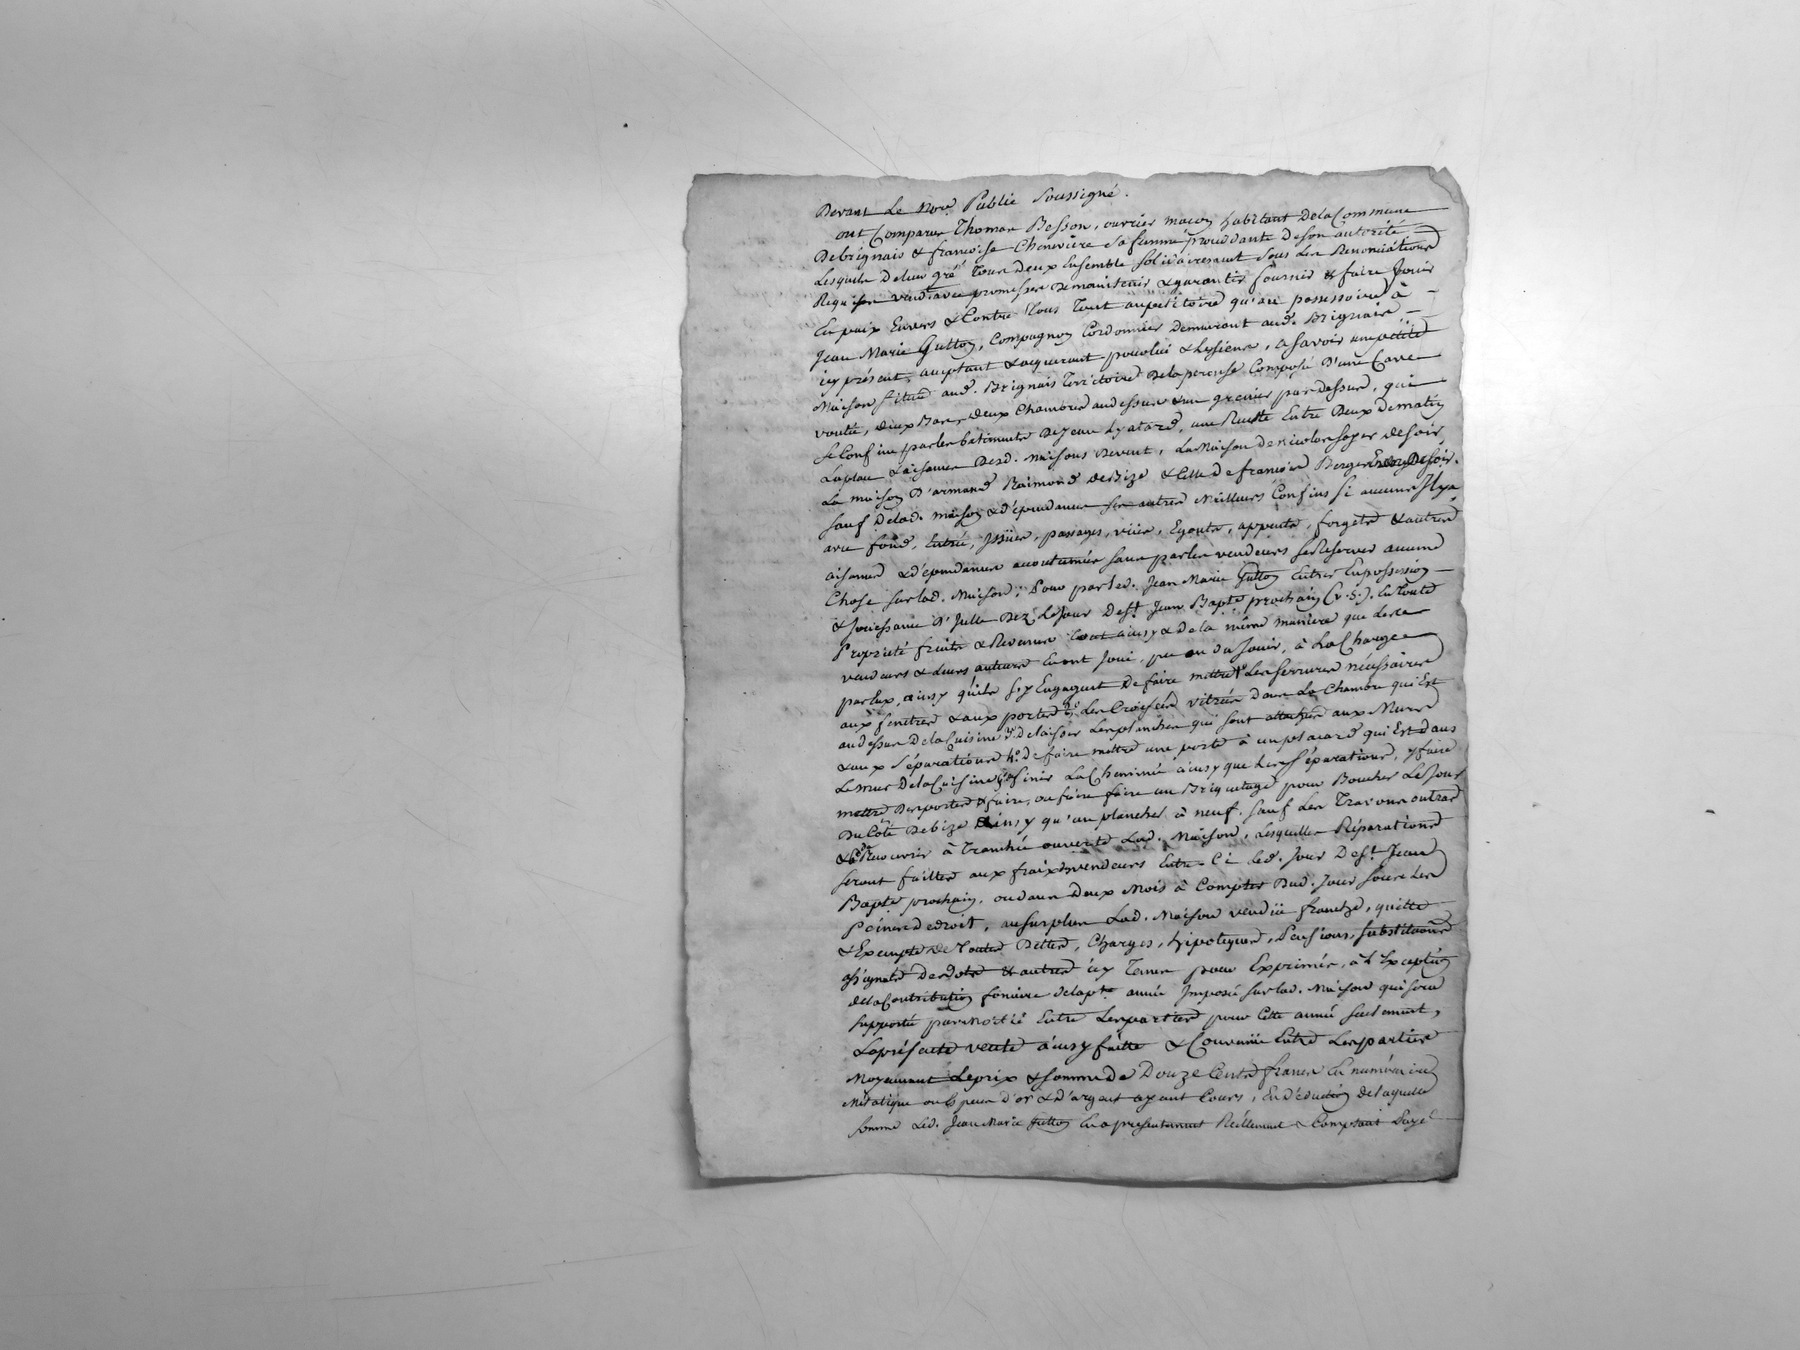 Devant Le Nore. Public Soussigné.
ont Comparus Thomas Besson, ouvrier maçon habitant dela Commune
Debrignais & françoise Cheneviere Sa femme procédante deson autorité
Lesquels deleur gré Tous deux Ensemble solidairement sous Les Renonciations
Requises vend avec promesse de maintenir & garantir fournir & faire Jouir
En paix Envers & Contre Tous Tout aupetitoire qu'au possessoire à
Jean Marie Gutton, Compagnon Cordonnier demeurant aud. Brignais
icy présent, acceptant & acquerant pourlui & lessiens, a savoir une petite
Maison située aud. Brignais Territoire Dela Composé D'une Cave
voutée, deux Bas, deux Chambres audessus & un grenier pardessus, qui
Se Confine parles bâtiments De Jean Lyatard, une Ruelle Entre Deux dematin
Laplace & aisances Desd. maisons devent, La Maison de nicolas soper desoir,
La maison D'armand Raimond debize & Celle de françoise Berger Desoir.
Sauf delad. maison & dépendances Ses autres Meilleurs Confins Si aucuns Ilya
avec fond, Entrée, Issües, passages, vües, Egouts, appents, forgets & autres
aisances & dépendances acoutumées sans parles vendeurs se Reserver aucune
Chose surlad. Maison; Pour parled. Jean Marie Gutton Entrer Enpossession
& Jouissance D'Icelle Dez Lejour Dest. Jean Bapte prochain (v.s.). En toute
Propriété fruits & Revenus tout ainsy & de la même manière que Les
vendeurs & Leurs auteurs Enont Joui, pu ou du Jouir, à La Charge
par Eux, ainsy quils S'y Engagent de faire mettre 1o. Les serrures nécessaires
aux fenêtres & aux portes 2o. Les Croisées vitrées dans La Chambre qui Est
audessus De la Cuisine 3o. delaisser Les planches qui sont attachées aux Murs
& aux Séparations 4o. de faire mettre une porte à un placard qui Est dans
Le mur Dela Cuisine 5o. finir La Cheminée ainsy que Les Séparations, y faire
mettre Des portes & faire, ou faire faire un Briquetage pour Boucher Le Jour
Du Coté De bize Ainsy qu'un plancher à neuf. sauf Les Travons outras
& 6o. Recouvrir à Tranchée ouverte Lad. Maison, Lesquelles Réparations
seront faittes aux fraix des vendeurs Entre Ci Led. Jour Dest. Jean
Bapte prochain, ou dans deux Mois à Compter Dud. Jour sous Les
Peines de droit, au surplus Lad. Maison vendüe franche, quitte
& Exempte de Toutes Dettes, Charges, hipoteques, Pensions, substitutions
assignats de dots & autres icy Tenus pour Exprimés, à L'Exception
dela Contribution fonciere delapte. année Imposée surlad. Maison qui sera
supportée parmoitié Entre Les parties pour Cette année seulement,
La présente vente ainsy faitte & Convenüe Entre Les parties
Moyennant Le prix & somme de Douze Cents francs En numéraire
Métalique ou Especes d'or & d'argent ayant Cours, En déduction delaquelle
Somme Led. Jean Marie Gutton En a présentement Réellement & Comptant Payé